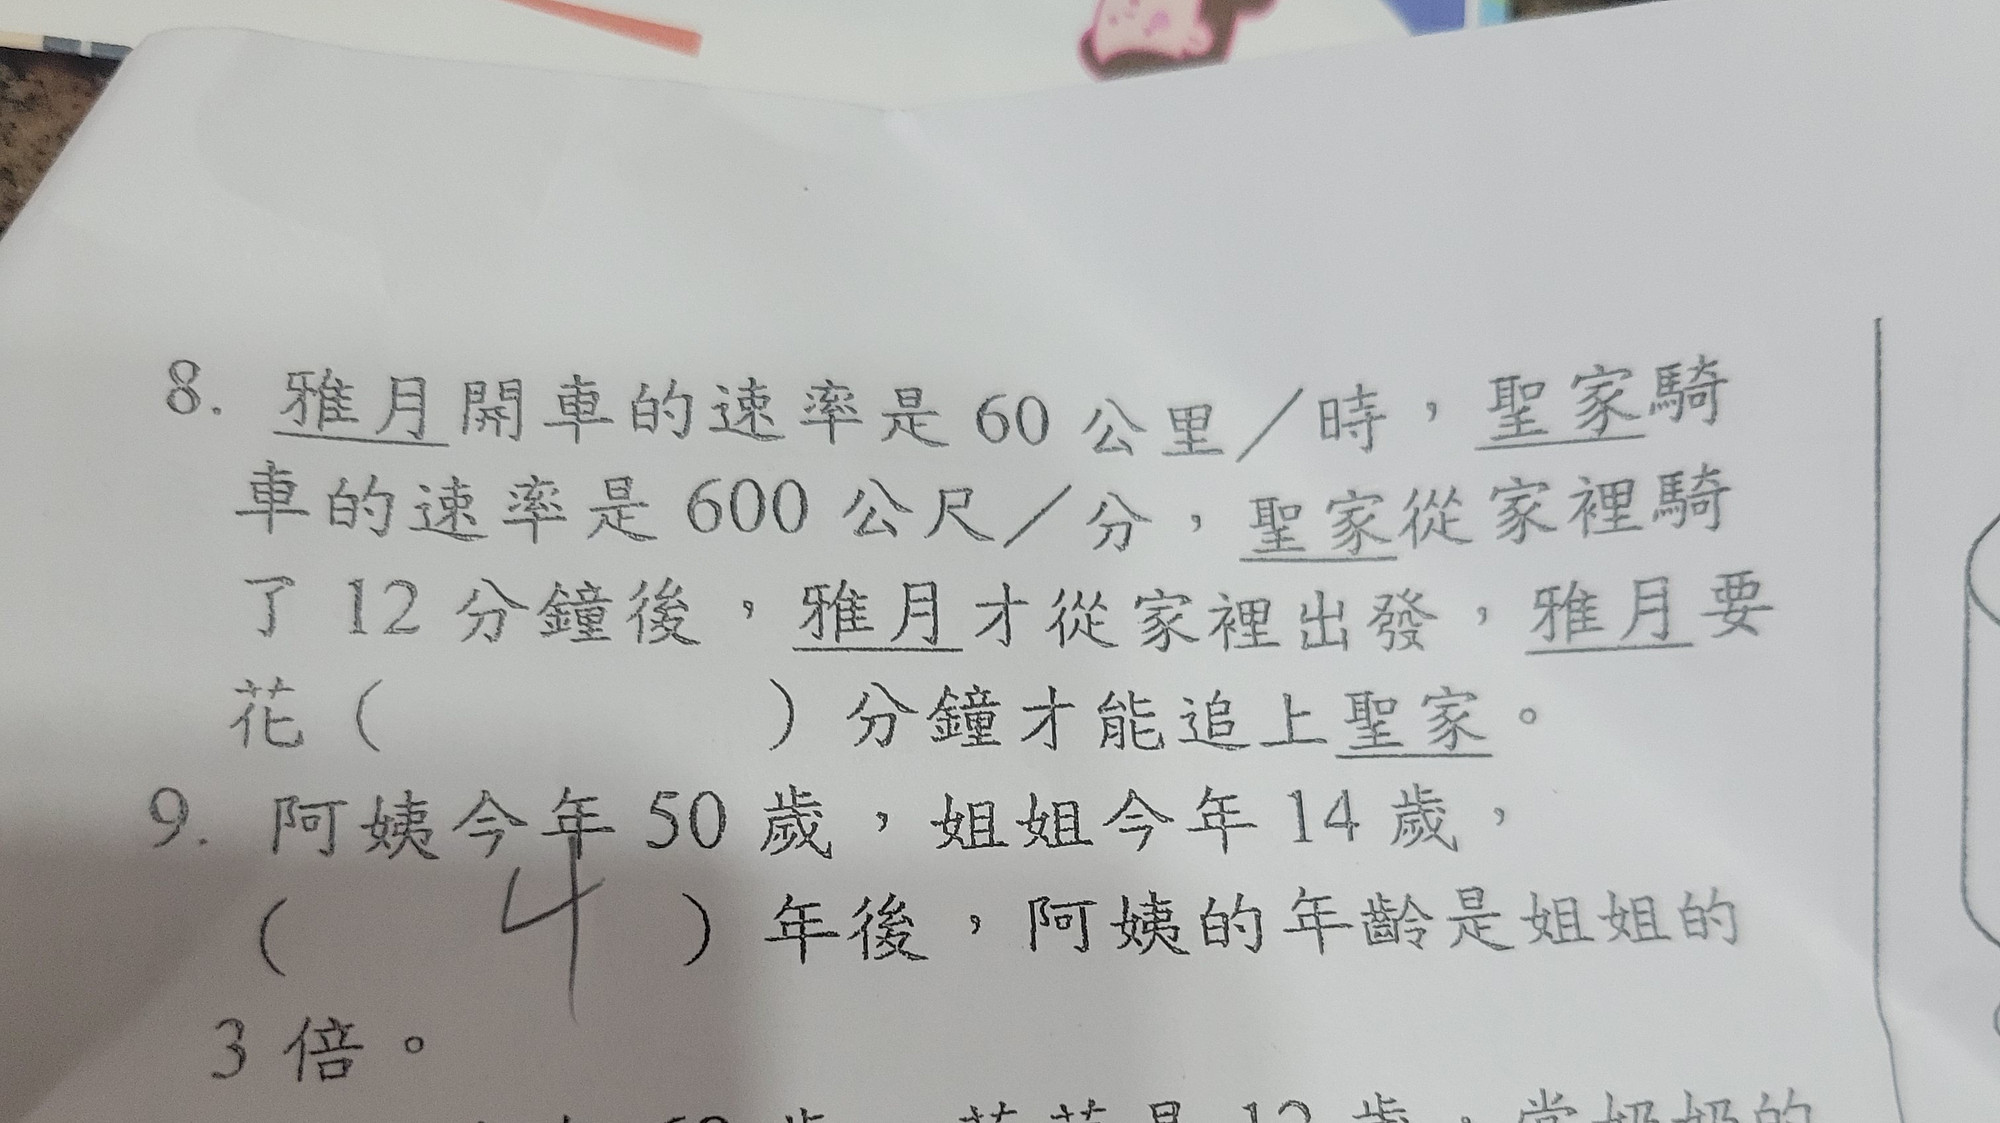 8. 雅月開車的速率是 60 公里／時，聖家騎
車的速率是 600 公尺／分，聖家從家裡騎
了 12 分鐘後，雅月才從家裡出發，雅月要
花（ ）分鐘才能追上聖家。
9. 阿姨今年 50 歲，姐姐今年 14 歲，
（ 4 ）年後，阿姨的年齡是姐姐的
3 倍。